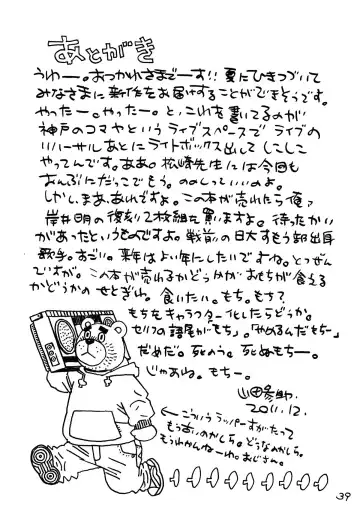 あとがき
うわー。おつかれさまでーす!! 夏にひきつづいて
みなさまに新作をお届けすることができそうです。
やったー。やったー。と、これを書いてるのが
神戸のコマヤというライブスペースで ライブの
リハーサルあとにライトボックス出して しこしこ
やってんです。ああ。松崎先生には今回も
おんぶにだっこでもう。
しかし、まあ、あれですよ。この本が売れたら俺ァ
岸井明の復刻2枚組を買いますよ。待ったかい
があったというものですよ。戦前の日大すもう部出身
歌手。すごい。来年はよい年にしたいですね。とりあえず
ですが。この本が売れるかどうかが おもちが食える
かどうかの せとぎわ。食いたい。もち。もち?
もちをキャラクター化したらどうか。
セリフの語尾が「もち」。「やめるんだもちー」
だめだ。死のう。死ぬもちー。
じゃあね。もちー。
2011.12.
こういうラッパーすがたって
もう古いのかしら。どうなのかしら。
もうわかんねーわ。おじさん。
39